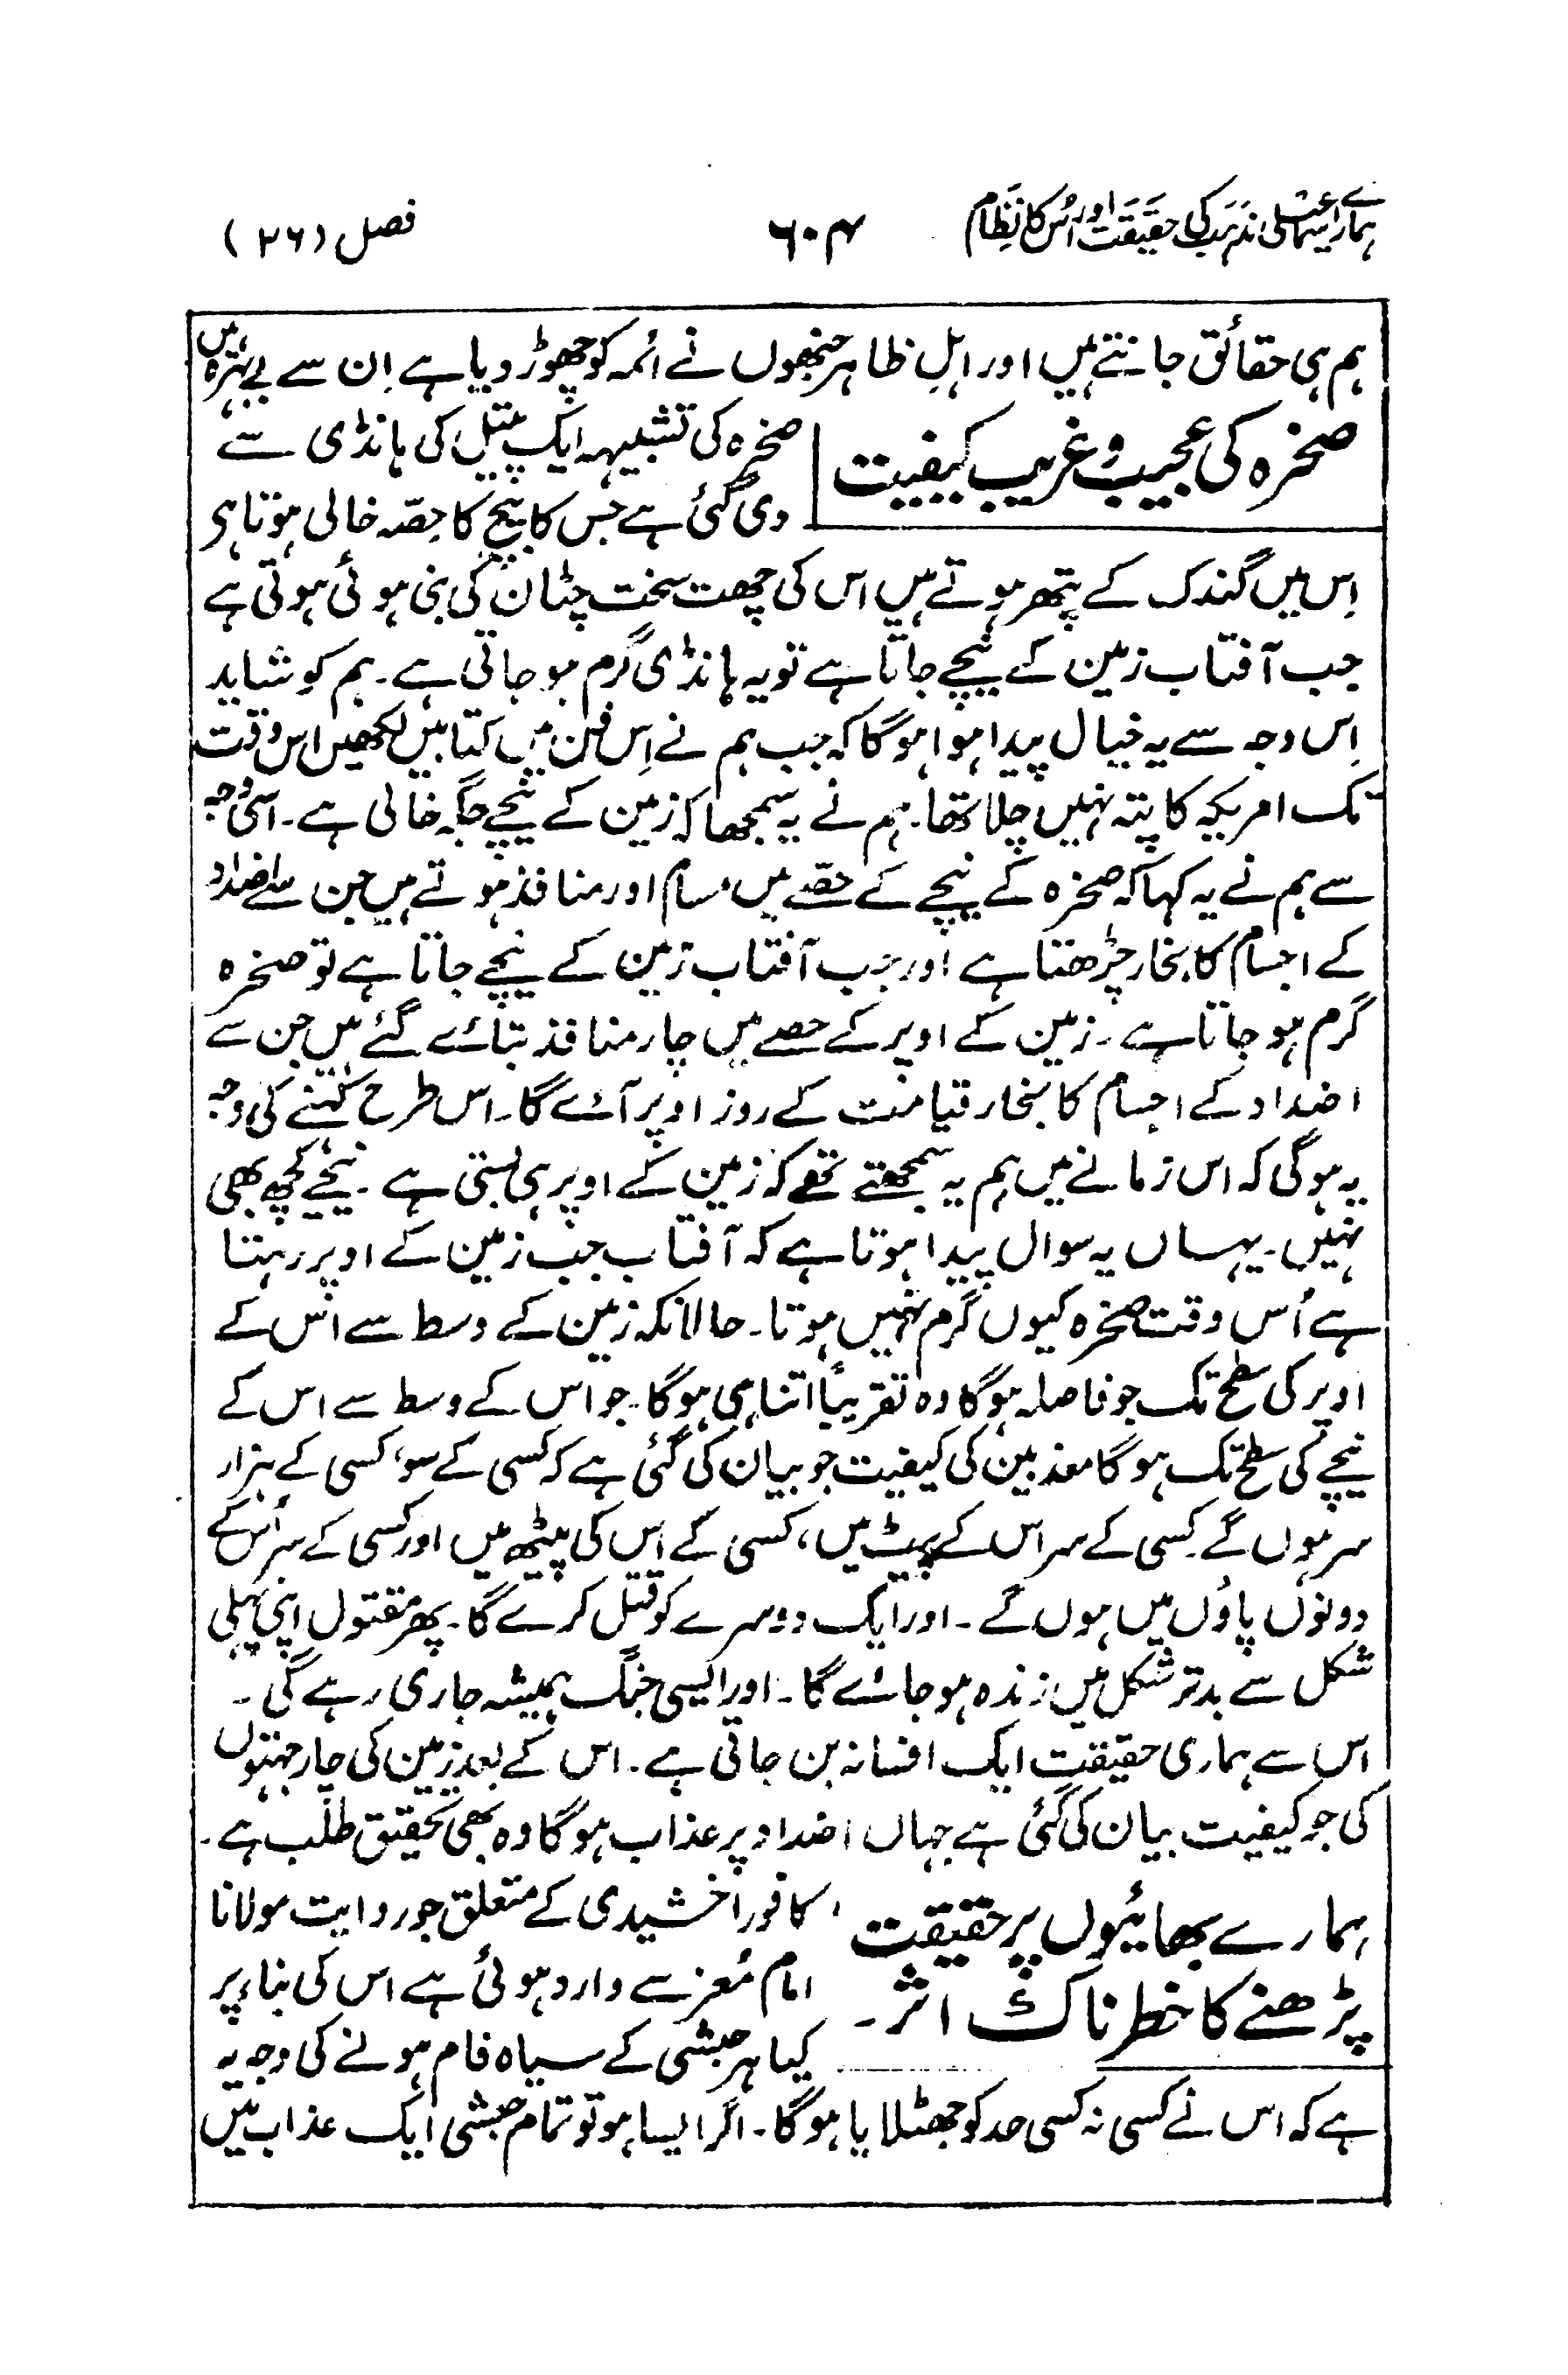 ہمارے اسماعیلی مذہب کی حقیقت اور اُس کا نظام
۶۰۴
فصل (۲۶)
ہم ہی حقائق جانتے ہیں اور اہلِ ظاہر جنھوں نے ائمہ کو چھوڑ دیا ہے اِن سے بے بہرہ ہیں
صخرہ کی عجیب و غریب کیفیت
صخرہ کی تشبیہہ ایک پیتل کی ہانڈی سے
دی گئی ہے جس کا بیچ کا حصّہ خالی ہوتا ہی
اِس میں گندک کے پتھر ہوتے ہیں اس کی چھت سخت چٹان کی بنی ہوئی ہوتی ہے
جب آفتاب زمین کے نیچے جاتا ہے تو یہ ہانڈی گرم ہو جاتی ہے۔ ہم کو شاید
اِس وجہ سے یہ خیال پیدا ہوا ہوگا کہ جب ہم نے اِس فن میں کتابیں لکھیں اس وقت
تک امریکہ کا پتہ نہیں چلا تھا۔ ہم نے یہ سمجھا کہ زمین کے نیچے جگہ خالی ہے۔ اسی وجہ
سے ہم نے یہ کہا کہ صخرہ کے نیچے کے حصّے میں مسام اور منافذ ہوتے ہیں جن سے اضداد
کے اجسام کا بخار چڑھتا ہے اور جب آفتاب زمین کے نیچے جاتا ہے تو صخرہ
گرم ہو جاتا ہے۔ زمین کے اوپر کے حصے میں چار منافذ بتائے گئے ہیں جن سے
اضداد کے اجسام کا بخار قیامت کے روز اوپر آئے گا۔ اس طرح کہنے کی وجہ
یہ ہوگی کہ اس زمانے میں ہم یہ سمجھتے تھے کہ زمین کے اوپر ہی بستی ہے۔ نیچے کچھ بھی
نہیں۔ یہاں یہ سوال پیدا ہوتا ہے کہ آفتاب جب زمین کے اوپر رہتا
ہے اُس وقت صخرہ کیوں گرم نہیں ہوتا۔ حالانکہ زمین کے وسط سے اس کے
اوپر کی سطح تک جو فاصلہ ہوگا وہ تقریباً اتنا ہی ہوگا۔ جو اس کے وسط سے اس کے
نیچے کی سطح تک ہوگا معذبین کی کیفیت جو بیان کی گئی ہے کہ کسی کے سو، کسی کے ہزار
سر ہوں گے۔ کسی کے سر اس کے پیٹ میں، کسی کے اِس کی پیٹھ میں اور کسی کے سر اُس کے
دونوں پاؤں میں ہوں گے۔ اور ایک دوسرے کو قتل کرے گا۔ پھر مقتول اپنی پہلی
شکل سے بدتر شکل میں زندہ ہو جائے گا۔ اور ایسی جنگ ہمیشہ جاری رہے گی۔
اس سے ہماری حقیقت ایک افسانہ بن جاتی ہے۔ اس کے بعد زمین کی چار جہتوں
کی جو کیفیت بیان کی گئی ہے جہاں اضداد پر عذاب ہوگا وہ بھی تحقیق طلب ہے۔
ہمارے بھائیوں پر حقیقت
پڑھنے کا خطرناک اثر۔
کافور اخشیدی کے متعلق جو روایت مولانا
امام مُعز سے وارد ہوئی ہے اس کی بناء پر
کیا ہر حبشی کے سیاہ فام ہونے کی وجہ یہ
ہے کہ اس نے کسی نہ کسی حد کو جھٹلایا ہوگا۔ اگر ایسا ہو تو تمام حبشی ایک عذاب میں